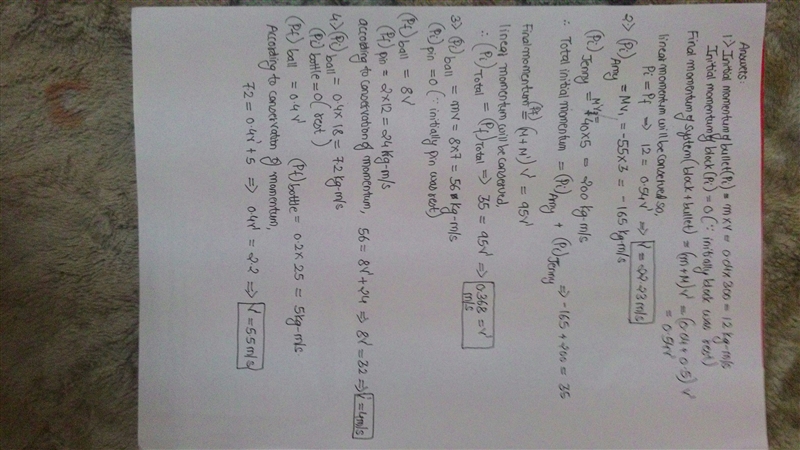 Answers:
1:> Initial momentum of bullet (Pi) = m×v = 0.04×300 = 12 kg-m/s
Initial momentum of block (Pi) = 0 (∵ initially block was rest)
Final momentum of system (block + bullet) = (m+M)V = (0.04+0.5) V
= 0.54V
linear momentum will be conserved so,
Pi = Pf ⇒ 12 = 0.54V ⇒ V = 22.23 m/s
2:> (Pi) Amy = MV1 = -55×3 = -165 kg-m/s
(Pi) Jenny = M'V2 = 40×5 = 200 kg-m/s
∴ Total initial momentum = (Pi) Amy + (Pi) Jenny ⇒ -165+200 = 35
Final momentum (Pf) = (M+M') V = 95V
linear momentum will be conserved,
∴ (Pi) Total = (Pf) Total ⇒ 35 = 95V ⇒ 0.368 = V m/s
3> (Pi) ball = mv = 8×7 = 56 kg-m/s
(Pi) pin = 0 (∵ initially pin was rest)
(Pf) ball = 8V
(Pf) pin = 2×12 = 24 kg-m/s
according to conservation of momentum, 56 = 8V+24 ⇒ 8V = 32 ⇒ V = 4m/s
4:> (Pi) ball = 0.4×18 = 7.2 kg-m/s
(Pi) bottle = 0 (rest)
(Pf) ball = 0.4V (Pf) bottle = 0.2×25 = 5kg-m/s
According to conservation of momentum,
7.2 = 0.4V+5 ⇒ 0.4V = 2.2 ⇒ V = 5.5 m/s